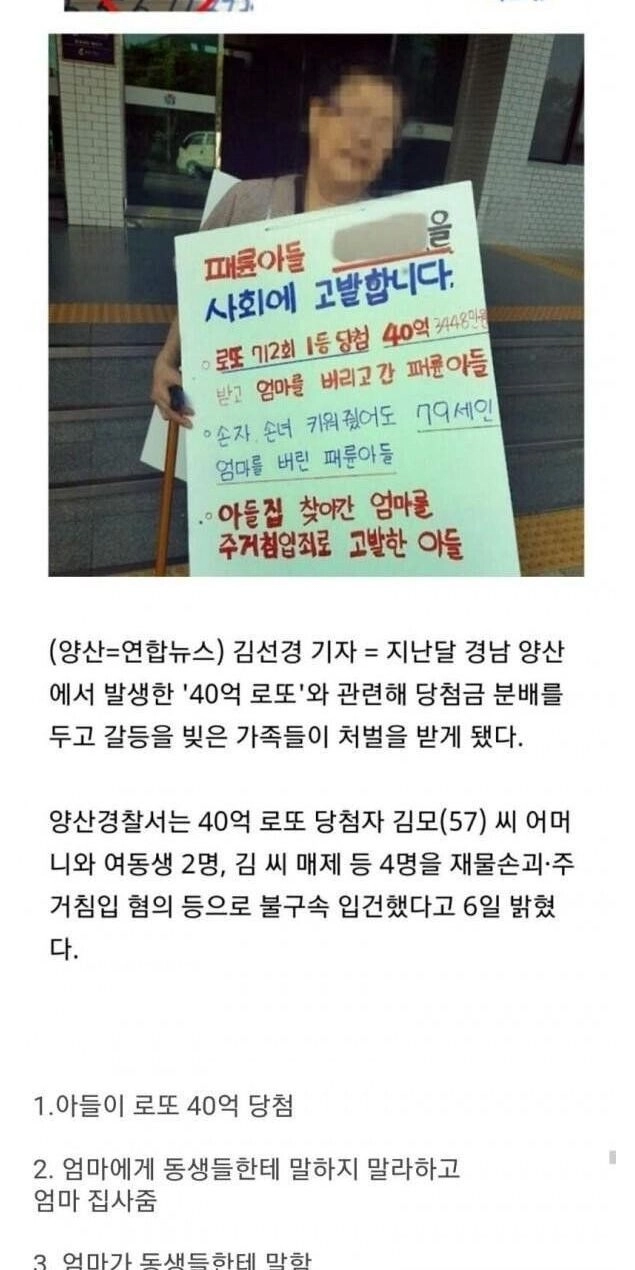 패륜아들 을
사회에 고발합니다.
○ 로또 712회 1등 당첨 40억 3448만원
받고 엄마를 버리고 간 패륜아들
○ 손자.손녀 키워줬어도 79세인
엄마를 버린 패륜아들
○ 아들집 찾아간 엄마를
주거침입죄로 고발한 아들
(양산=연합뉴스) 김선경 기자 = 지난달 경남 양산
에서 발생한 '40억 로또'와 관련해 당첨금 분배를
두고 갈등을 빚은 가족들이 처벌을 받게 됐다.
양산경찰서는 40억 로또 당첨자 김모(57) 씨 어머
니와 여동생 2명, 김 씨 매제 등 4명을 재물손괴·주
거침입 혐의 등으로 불구속 입건했다고 6일 밝혔
다.
1.아들이 로또 40억 당첨
2. 엄마에게 동생들한테 말하지 말라하고
엄마 집사줌
3. 엄마가 동생들한테 말함